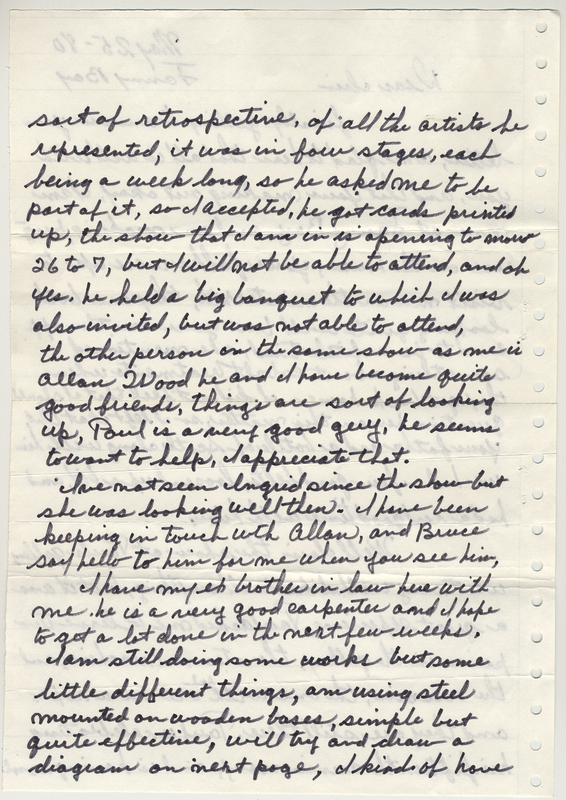 sort of retrospective, of all the artists he
represented, it was in four stages, each
being a week long, so he asked me to be
part of it, so I accepted, he got cards printed
up, the show that I am in is opening to morr
26 to 7, but I will not be able to attend, and oh
yes. he held a big banquet to which I was
also invited, but was not able to attend,
the other person on the same show as me is
Allan Wood he and I have become quite
good friends, things are sort of looking
up, Paul is a very good guy, he seems
to want to help, I appreciate that.
I've not seen Ingrid since the show but
she was looking well then. I have been
keeping in touch wth Allan, and Bruce
say hello to him for me when you see him,
I have my ex brother in law here with
me. he is a very good carpenter and I hope
to get a lot done in the next few weeks.
I am still doing some works but some
little different things, am using steel
mounted on wooden bases, simple but
quite effective, will try and draw a
diagram on next page, I kind of have